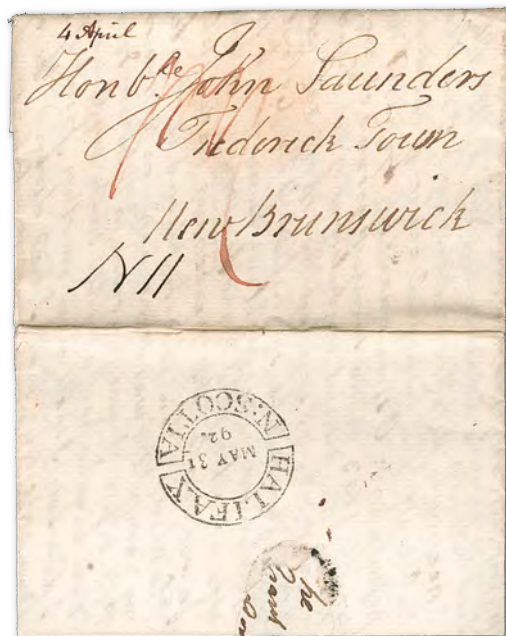 4 April
Honble John Saunders
Frederick Town
New Brunswick
N11
HALIFAX
N:SCOTIA
MAY 31
92.